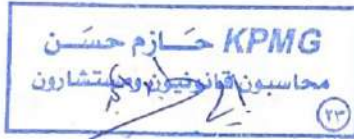 KPMG حـازم حسـن
محاسبون قانونيون ومستشارون
(٢٣)